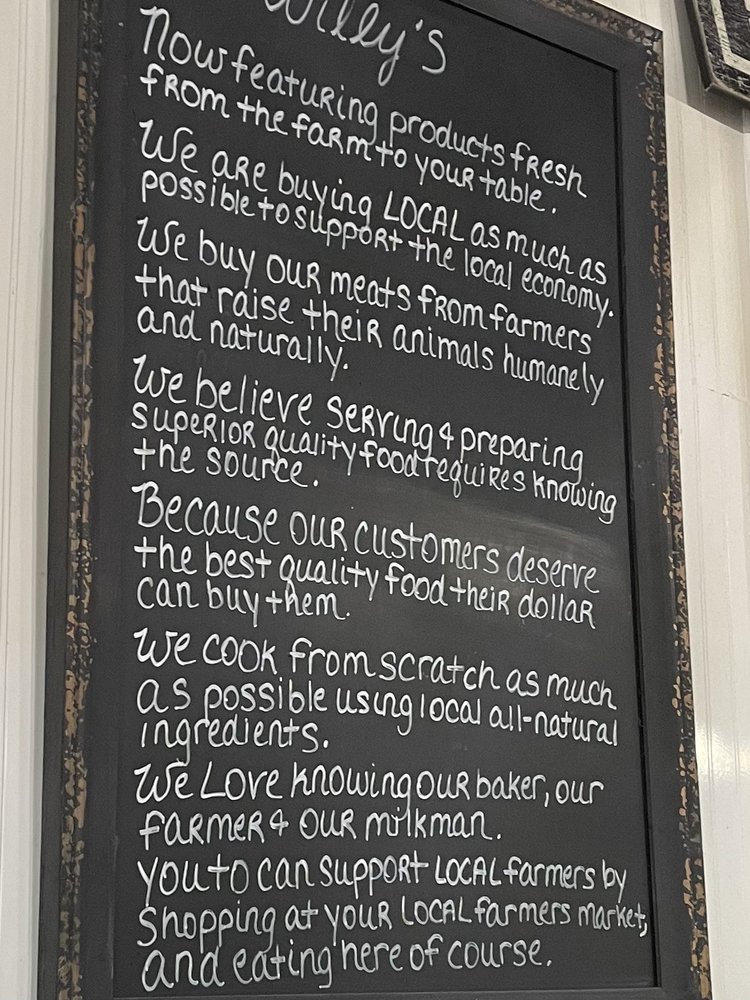 Willy's
Now featuring products fresh
from the farm to your table.
We are buying LOCAL as much as
possible to support the local economy.
We buy our meats from farmers
that raise their animals humanely
and naturally.
We believe serving & preparing
superior quality food requires knowing
the source.
Because our customers deserve
the best quality food their dollar
can buy them.
We cook from scratch as much
as possible using local all-natural
ingredients.
We Love knowing our baker, our
farmer & our milkman.
you to can support LOCAL farmers by
shopping at your LOCAL farmers market,
and eating here of course.